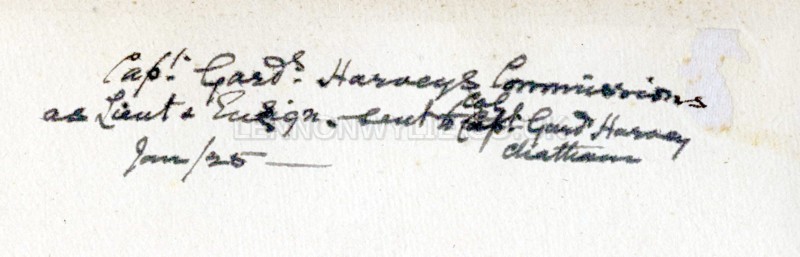 Capt. Gards. Harveys Commissions
as Lieut & Ensign. sent to Capt Gard Harvey
Col
Chatham
Jan/25 —
LENNONWYLIE